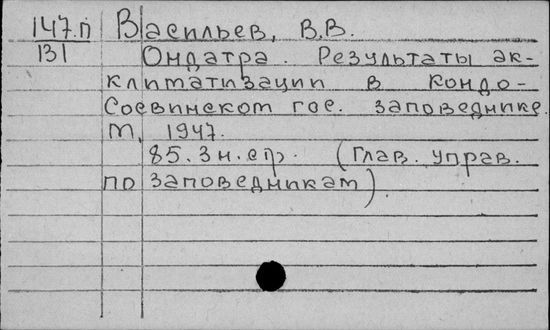 147.П Васильев, В.В.
131 Ондатра. Результаты ак-
климатизации в Кондо-
Сосвинском гос. заповеднике.
М, 1947.
85.3н.стр. (Глав. управ.
по заповедникам)